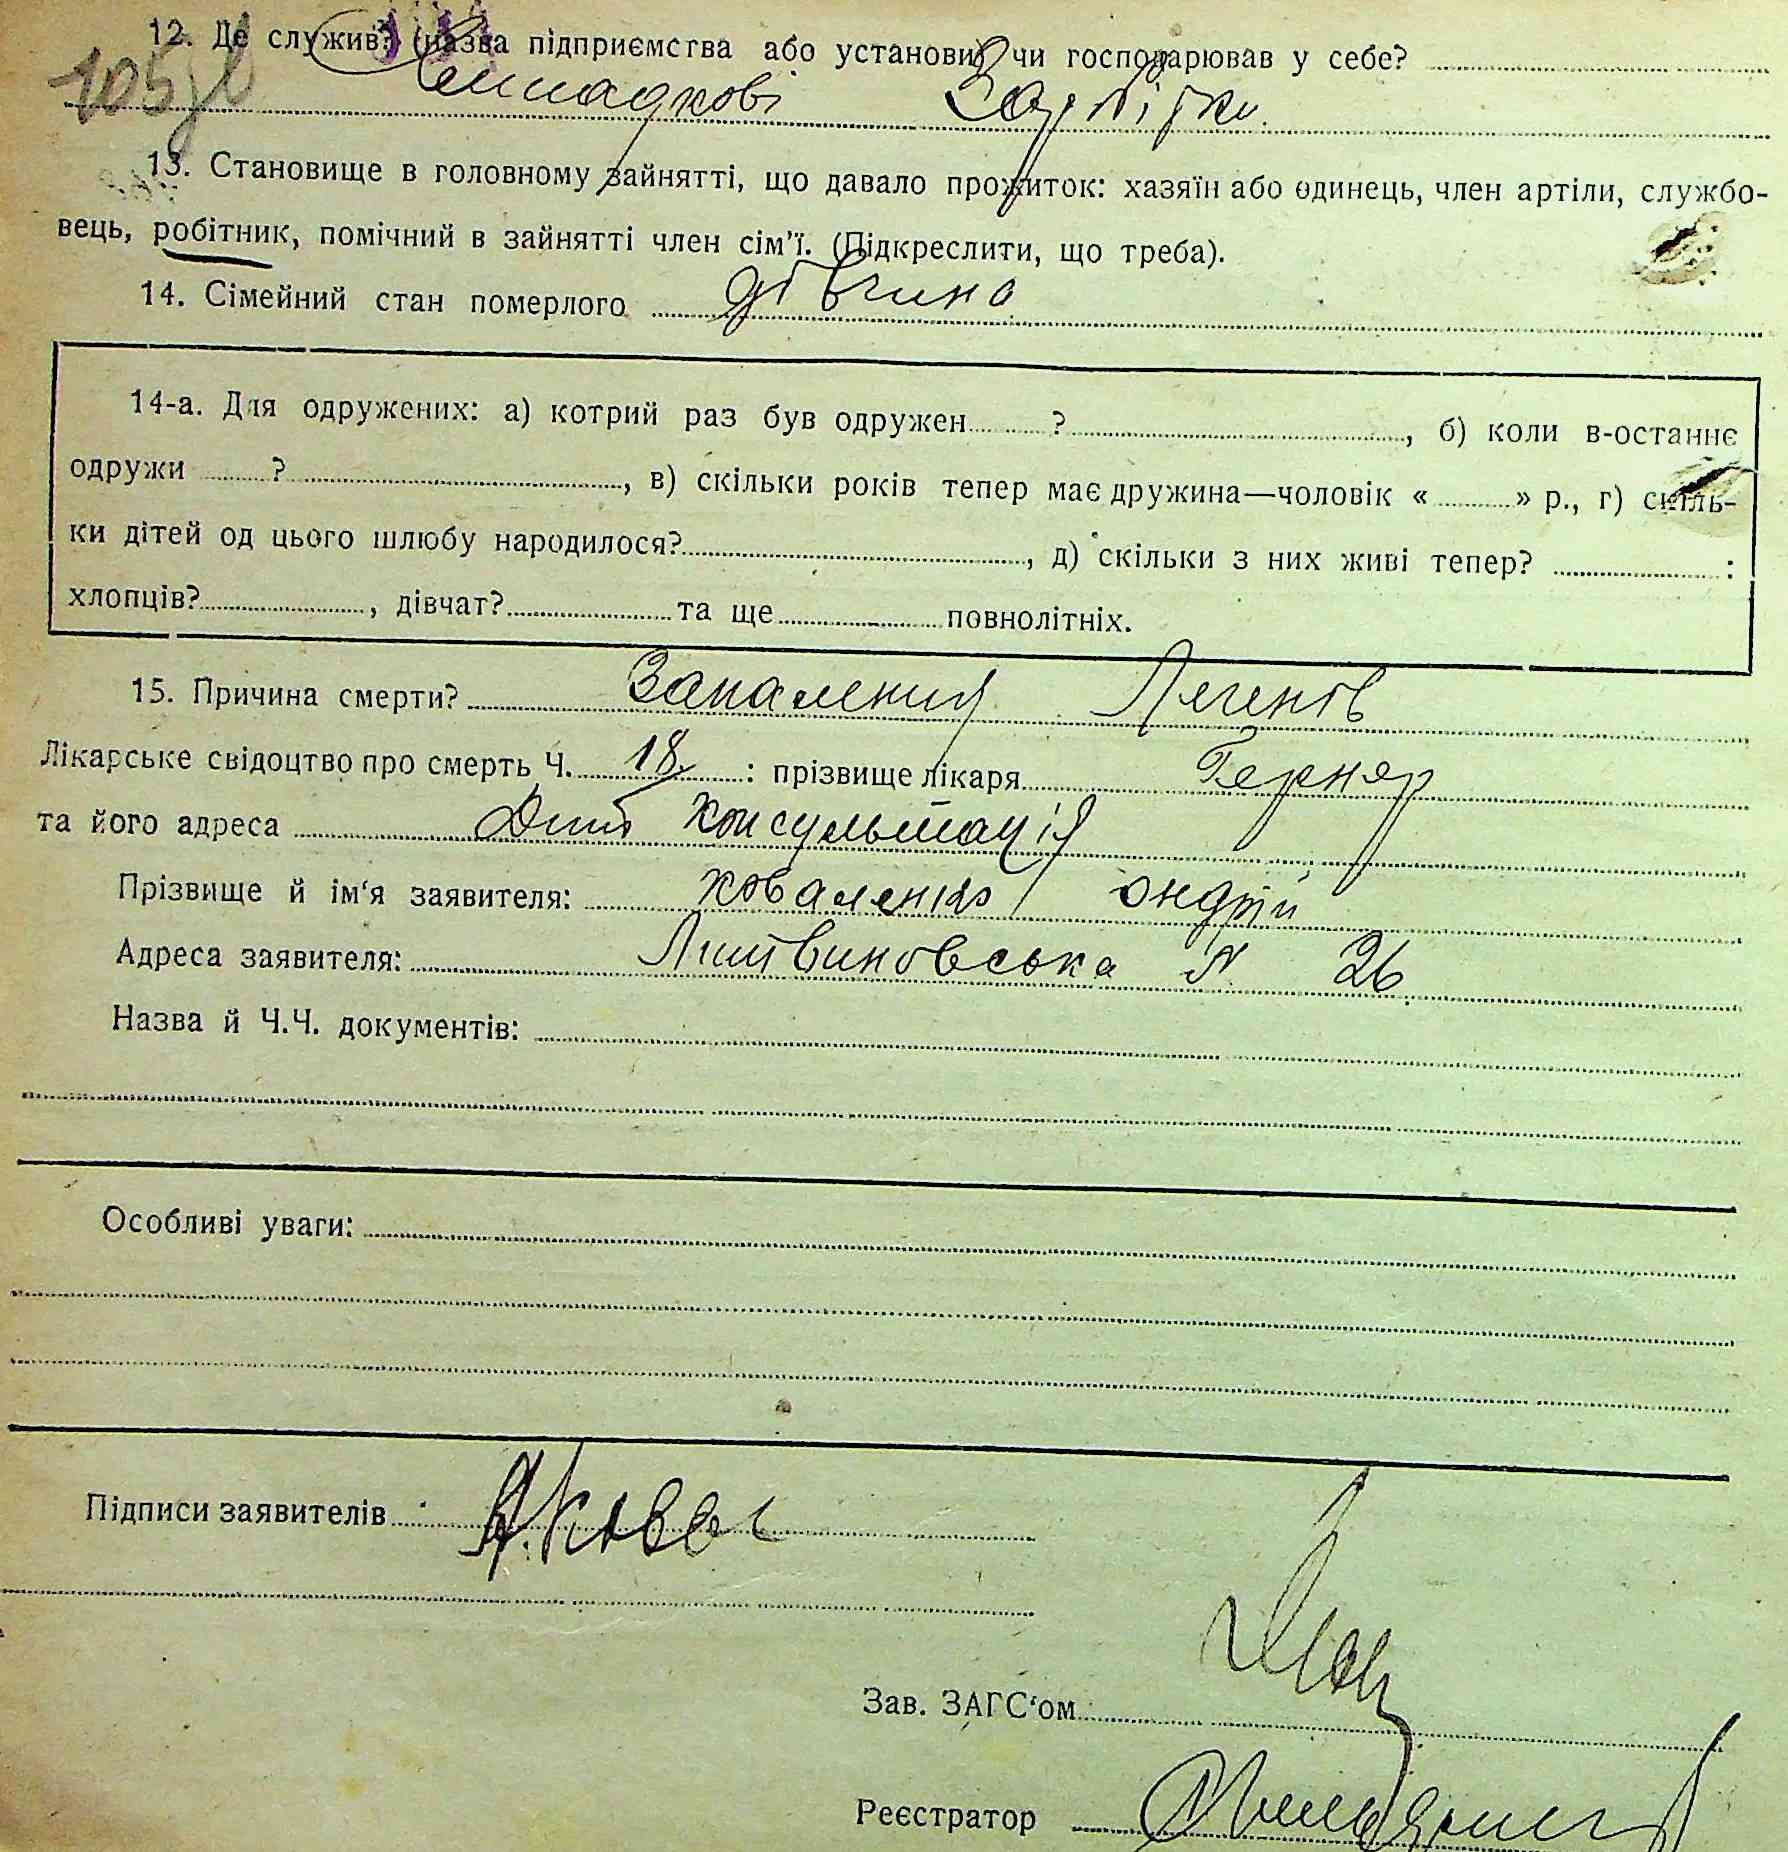 12. Де служив? (назва підприємства або установи) чи господарював у себе?
105
Випадкові Заробітки.
13. Становище в головному зайнятті, що давало прожиток: хазяїн або одинець, член артіли, службо-
вець, робітник, помічний в зайнятті член сім'ї. (Підкреслити, що треба).
14. Сімейний стан померлого дівчина
14-а. Для одружених: а) котрий раз був одружен ? , б) коли в-останнє
одружи ? , в) скільки років тепер має дружина—чоловік « » р., г) скіль-
ки дітей од цього шлюбу народилося? , д) скільки з них живі тепер? :
хлопців? , дівчат? та ще повнолітніх.
15. Причина смерти? Запалення Легенів
Лікарське свідоцтво про смерть Ч. 18 : прізвище лікаря
та його адреса Дит консультація
Прізвище й ім'я заявителя: Коваленко Ондрій
Адреса заявителя: Литвиновська N 26
Назва й Ч.Ч. документів:
Особливі уваги:
Підписи заявителів А. Ковал
Зав. ЗАГС'ом
Реєстратор